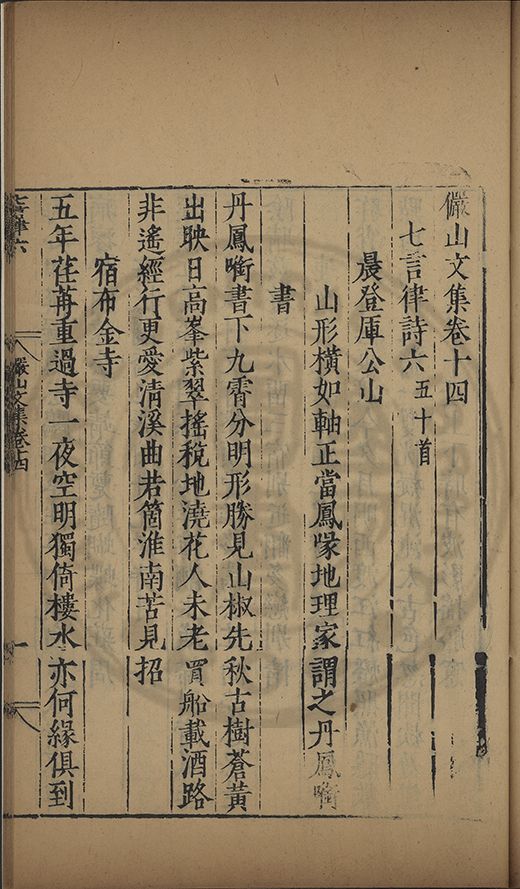 儼山文集卷十四
七言律詩六五十首
晨登庫公山
山形橫如軸正當鳳喙地理家謂之丹鳳啣
書
丹鳳啣書下九霄分明形勝見山椒先秋古樹蒼黃
出映日高峯紫翠搖稅地澆花人未老買船載酒路
非遙經行更愛清溪曲若箇淮南苦見招
宿布金寺
五年荏苒重過寺一夜空明獨倚樓水亦何緣俱到
七言律六
儼山文集卷十四
一